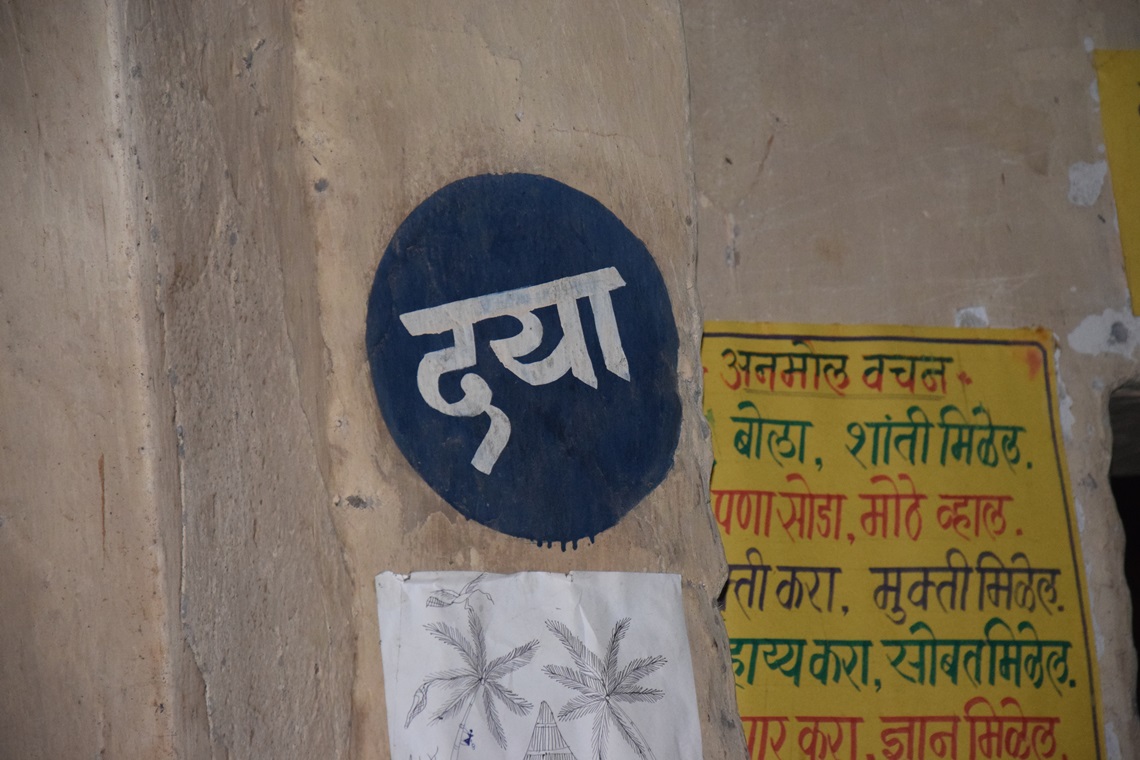 दया
अनमोल वचन
बोला, शांती मिळेल.
पणा सोडा, मोठे व्हाल.
ती करा, मुक्ती मिळेल.
हाय्य करा, सोबत मिळेल.
करा, ज्ञान मिळेल.